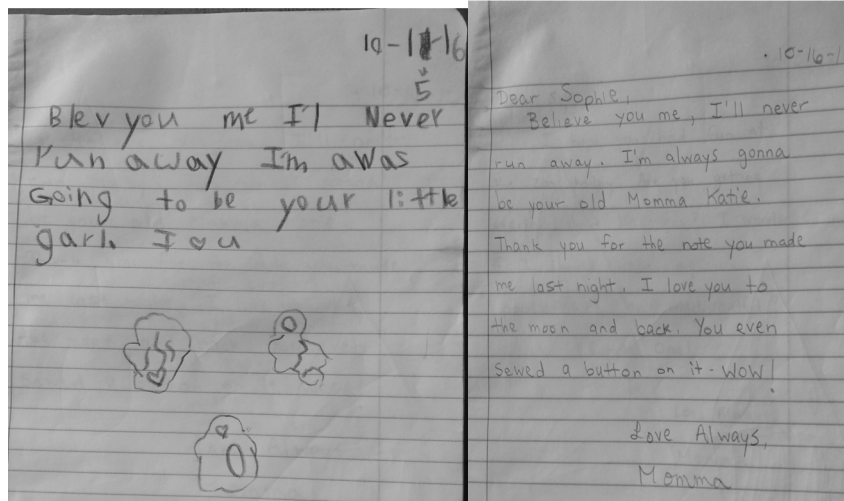 10-15-16
Blev you me I'l Never
run away I'm awas
Going to be your little
garl. I ♡ u
10-16-1
Dear Sophie,
Believe you me, I'll never
run away. I'm always gonna
be your old Momma Katie.
Thank you for the note you made
me last night. I love you to
the moon and back. You even
sewed a button on it - WOW!
Love Always,
Momma